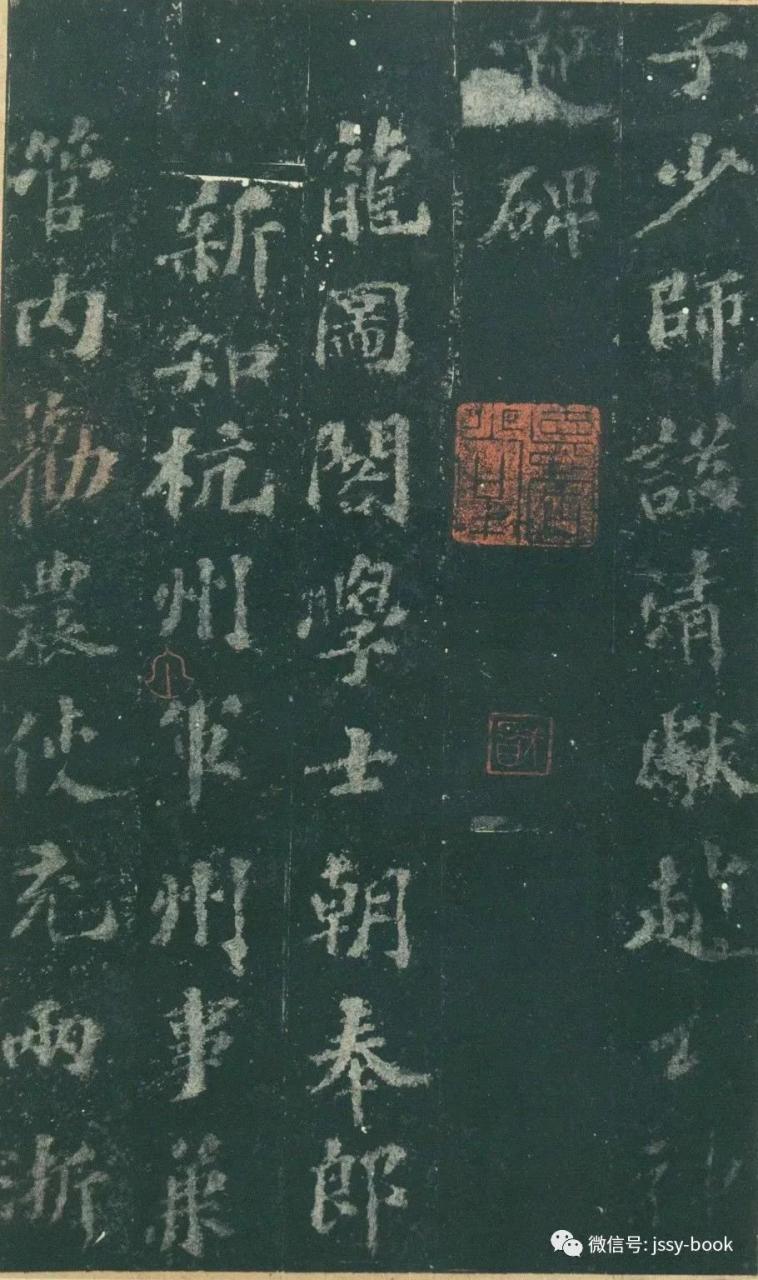 子少師謚清獻趙公神
道碑
龍圖閣學士朝奉郎
新知杭州軍州事兼
管內勸農使充兩浙
微信号: jssy-book